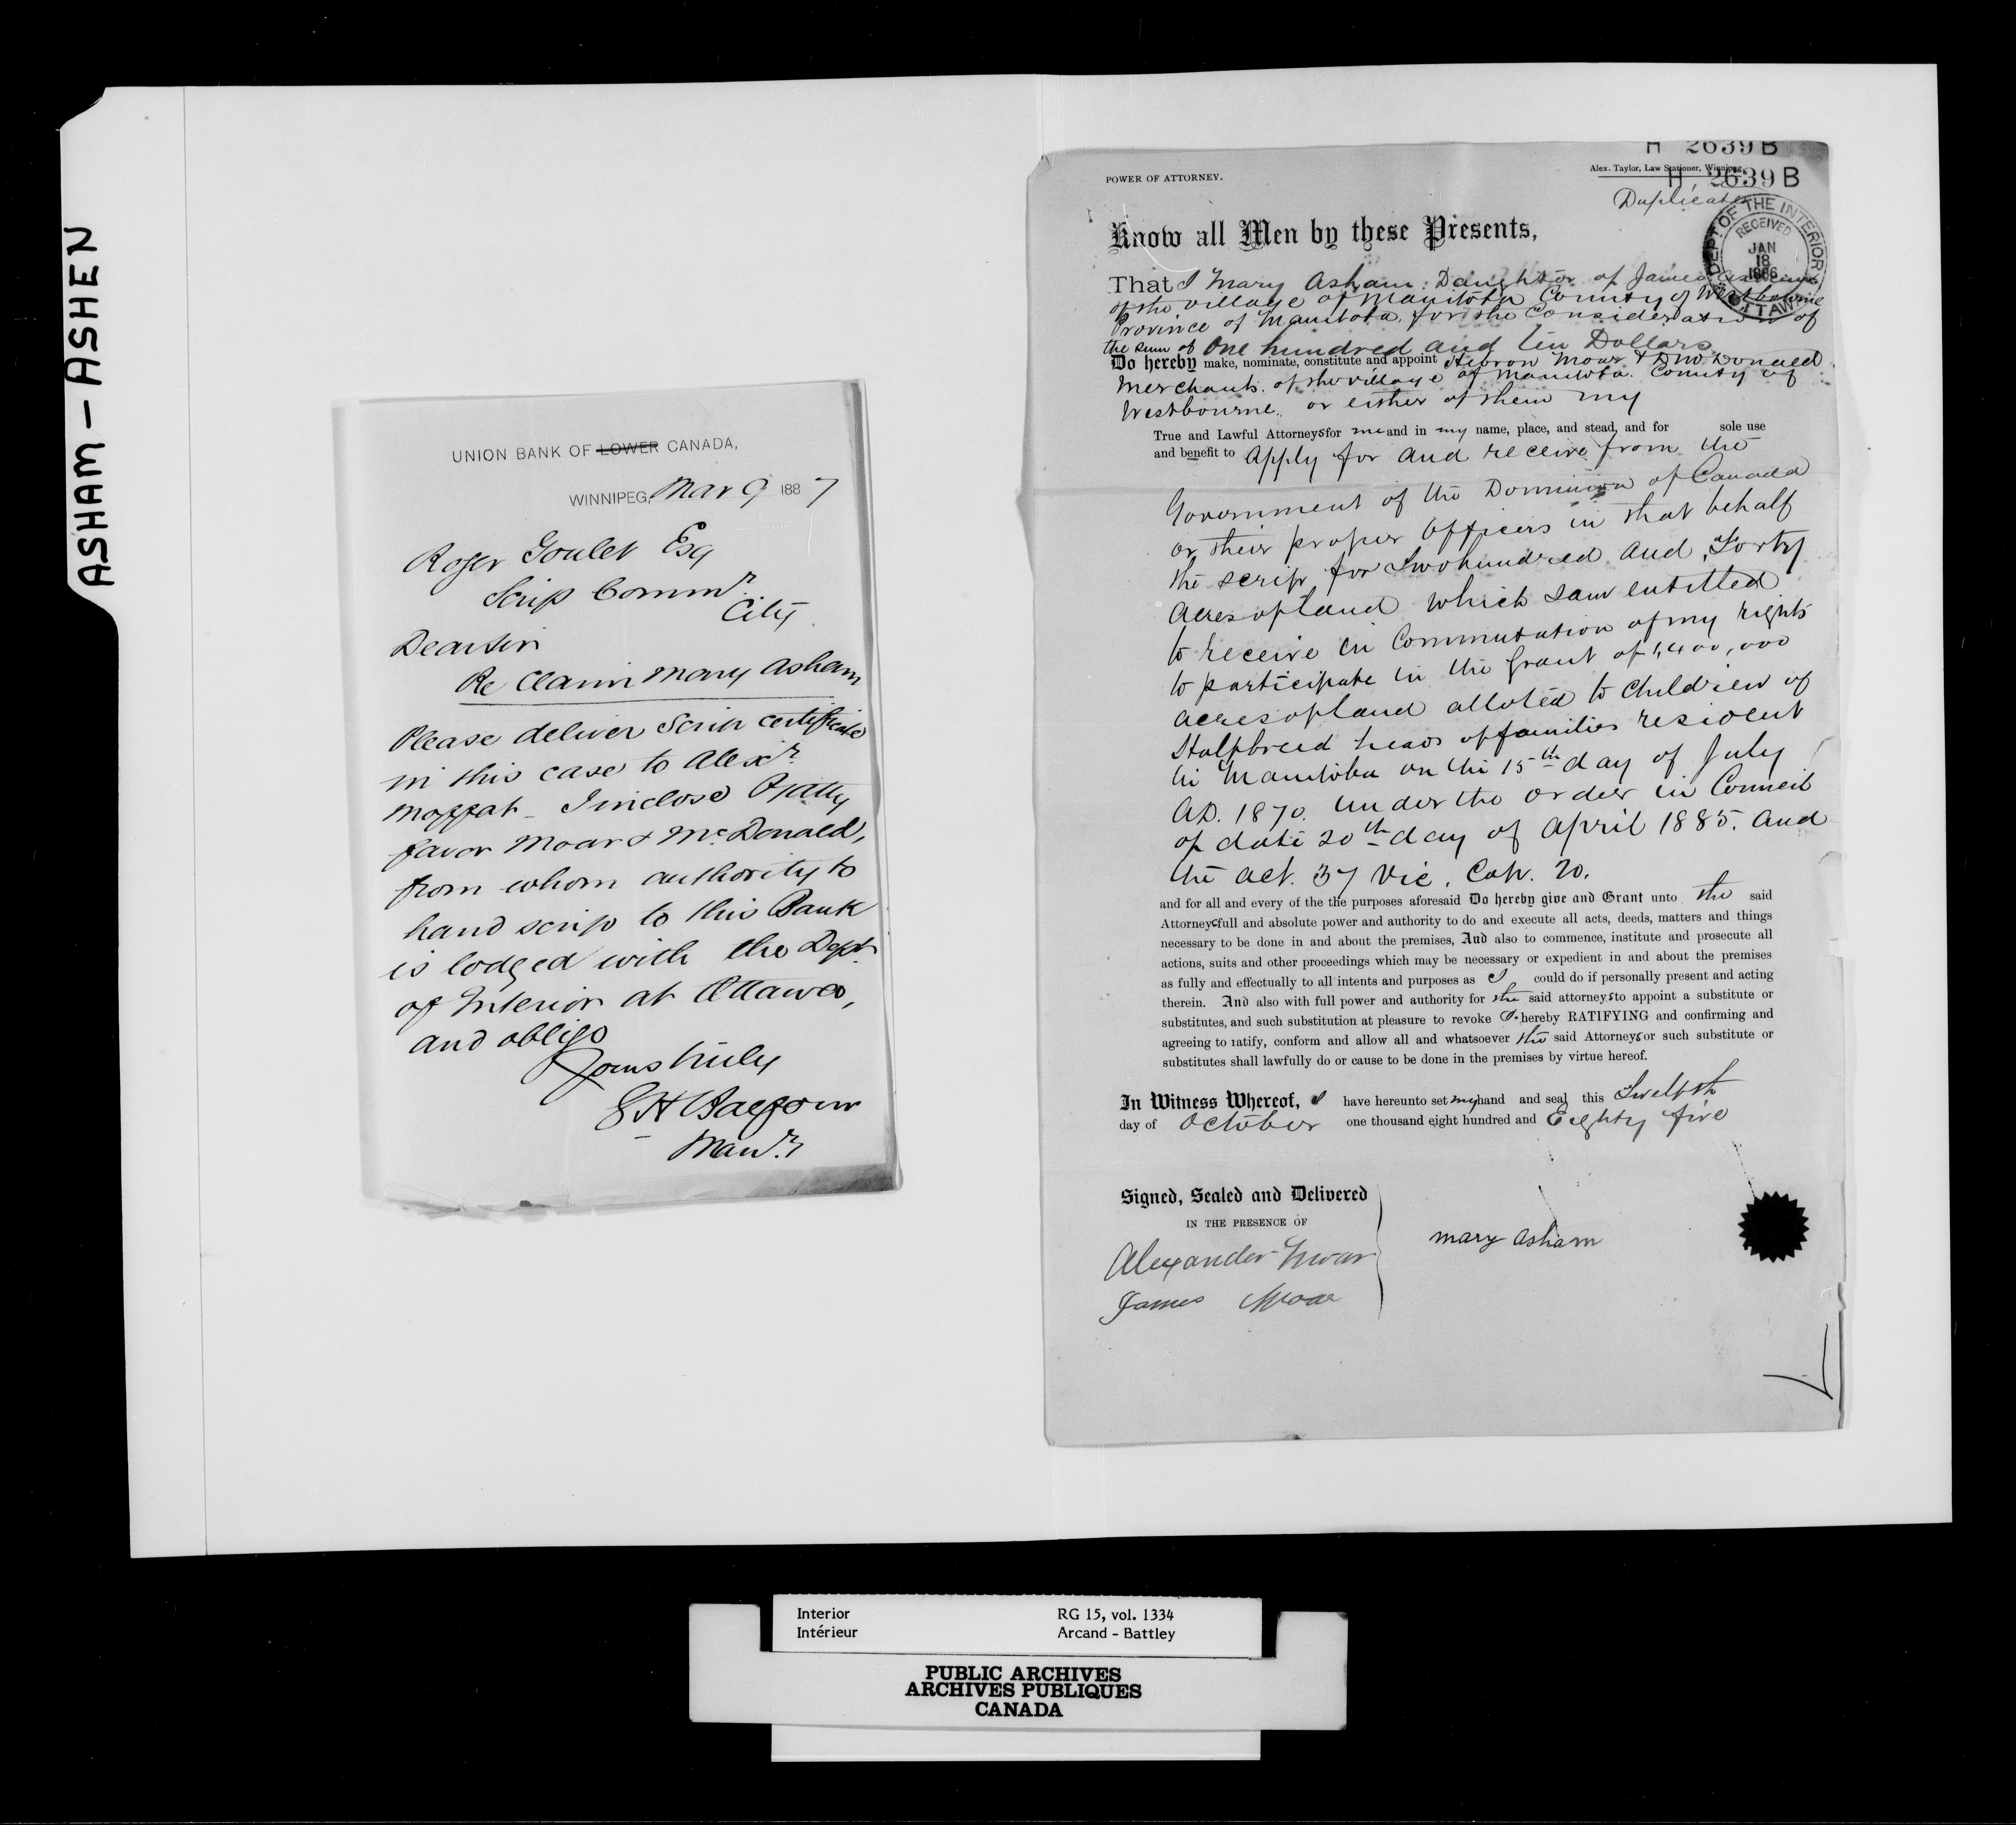 ASHAM – ASHEN
UNION BANK OF LOWER CANADA,
WINNIPEG, Mar 9 1887
Roger Goulet Esq
Scrip Commr.
City.
Dear Sir
Re Claim Mary Asham
Please deliver Scrip certificate
in this case to Alexr.
Moffat – I inclose P/atty
favor Moar & McDonald,
from whom authority to
hand scrip to this Bank
is lodged with the Dept.
of Interior at Ottawa,
and oblige
Yours truly
Manr.
H 2639 B
POWER OF ATTORNEY.
Alex. Taylor, Law Stationer, Winnipeg.
H 2639 B
Duplicate
DEPT. OF THE INTERIOR
RECEIVED
JAN
18
1886
OTTAWA
Know all Men by these Presents,
That I Mary Asham Daughter of James Asham
of the village of Manitoba County of Westbourne
Province of Manitoba, for the Consideration of
the sum of One hundred and ten Dollars
Do hereby make, nominate, constitute and appoint Moar & McDonald
Merchants. of the village of Manitoba. County of
Westbourne. or either of them my
True and Lawful Attorneys for me and in my name, place, and stead, and for sole use
and benefit to Apply for and receive from the
Government of the Dominion of Canada
or their proper Officers in that behalf
the scrip for Two hundred and Forty
Acres of land which I am entitled
to receive in Commutation of my rights
to participate in the grant of 1,400,000
acres of land alloted to Children of
Halfbreed heads of families resident
in Manitoba on the 15th day of July
A.D. 1870. under the order in Council
of date 20th day of April 1885. and
the act. 37 Vic. Cap. 20.
and for all and every of the the purposes aforesaid Do hereby give and Grant unto the said
Attorneys full and absolute power and authority to do and execute all acts, deeds, matters and things
necessary to be done in and about the premises, And also to commence, institute and prosecute all
actions, suits and other proceedings which may be necessary or expedient in and about the premises
as fully and effectually to all intents and purposes as I could do if personally present and acting
therein. And also with full power and authority for the said attorneys to appoint a substitute or
substitutes, and such substitution at pleasure to revoke I hereby RATIFYING and confirming and
agreeing to ratify, conform and allow all and whatsoever the said Attorneys or such substitute or
substitutes shall lawfully do or cause to be done in the premises by virtue hereof.
In Witness Whereof, I have hereunto set my hand and seal this Twelfth
day of October one thousand eight hundred and Eighty five
Signed, Sealed and Delivered
IN THE PRESENCE OF
Alexander Moar
James Moar
mary asham
Interior
Intérieur
RG 15, vol. 1334
Arcand - Battley
PUBLIC ARCHIVES
ARCHIVES PUBLIQUES
CANADA